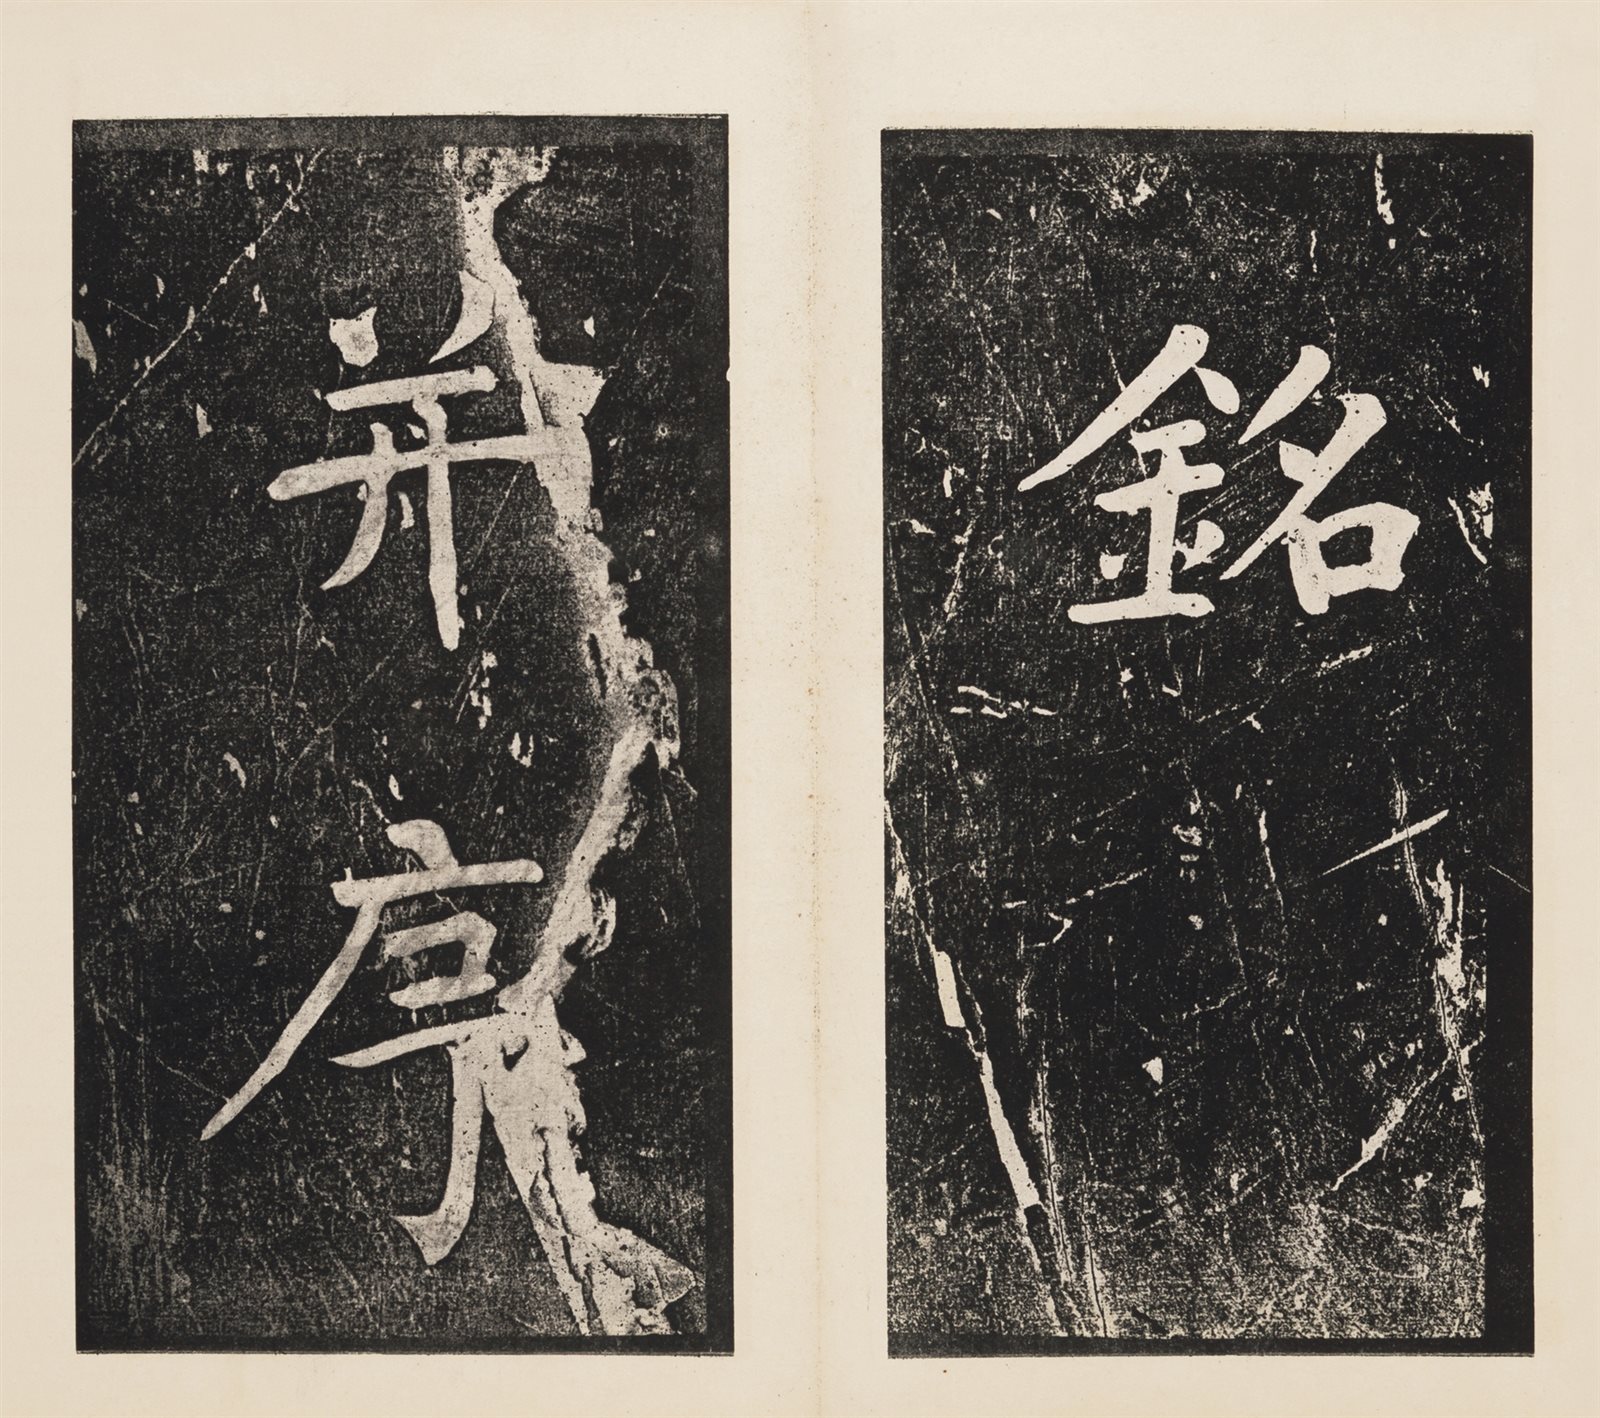 銘
并序